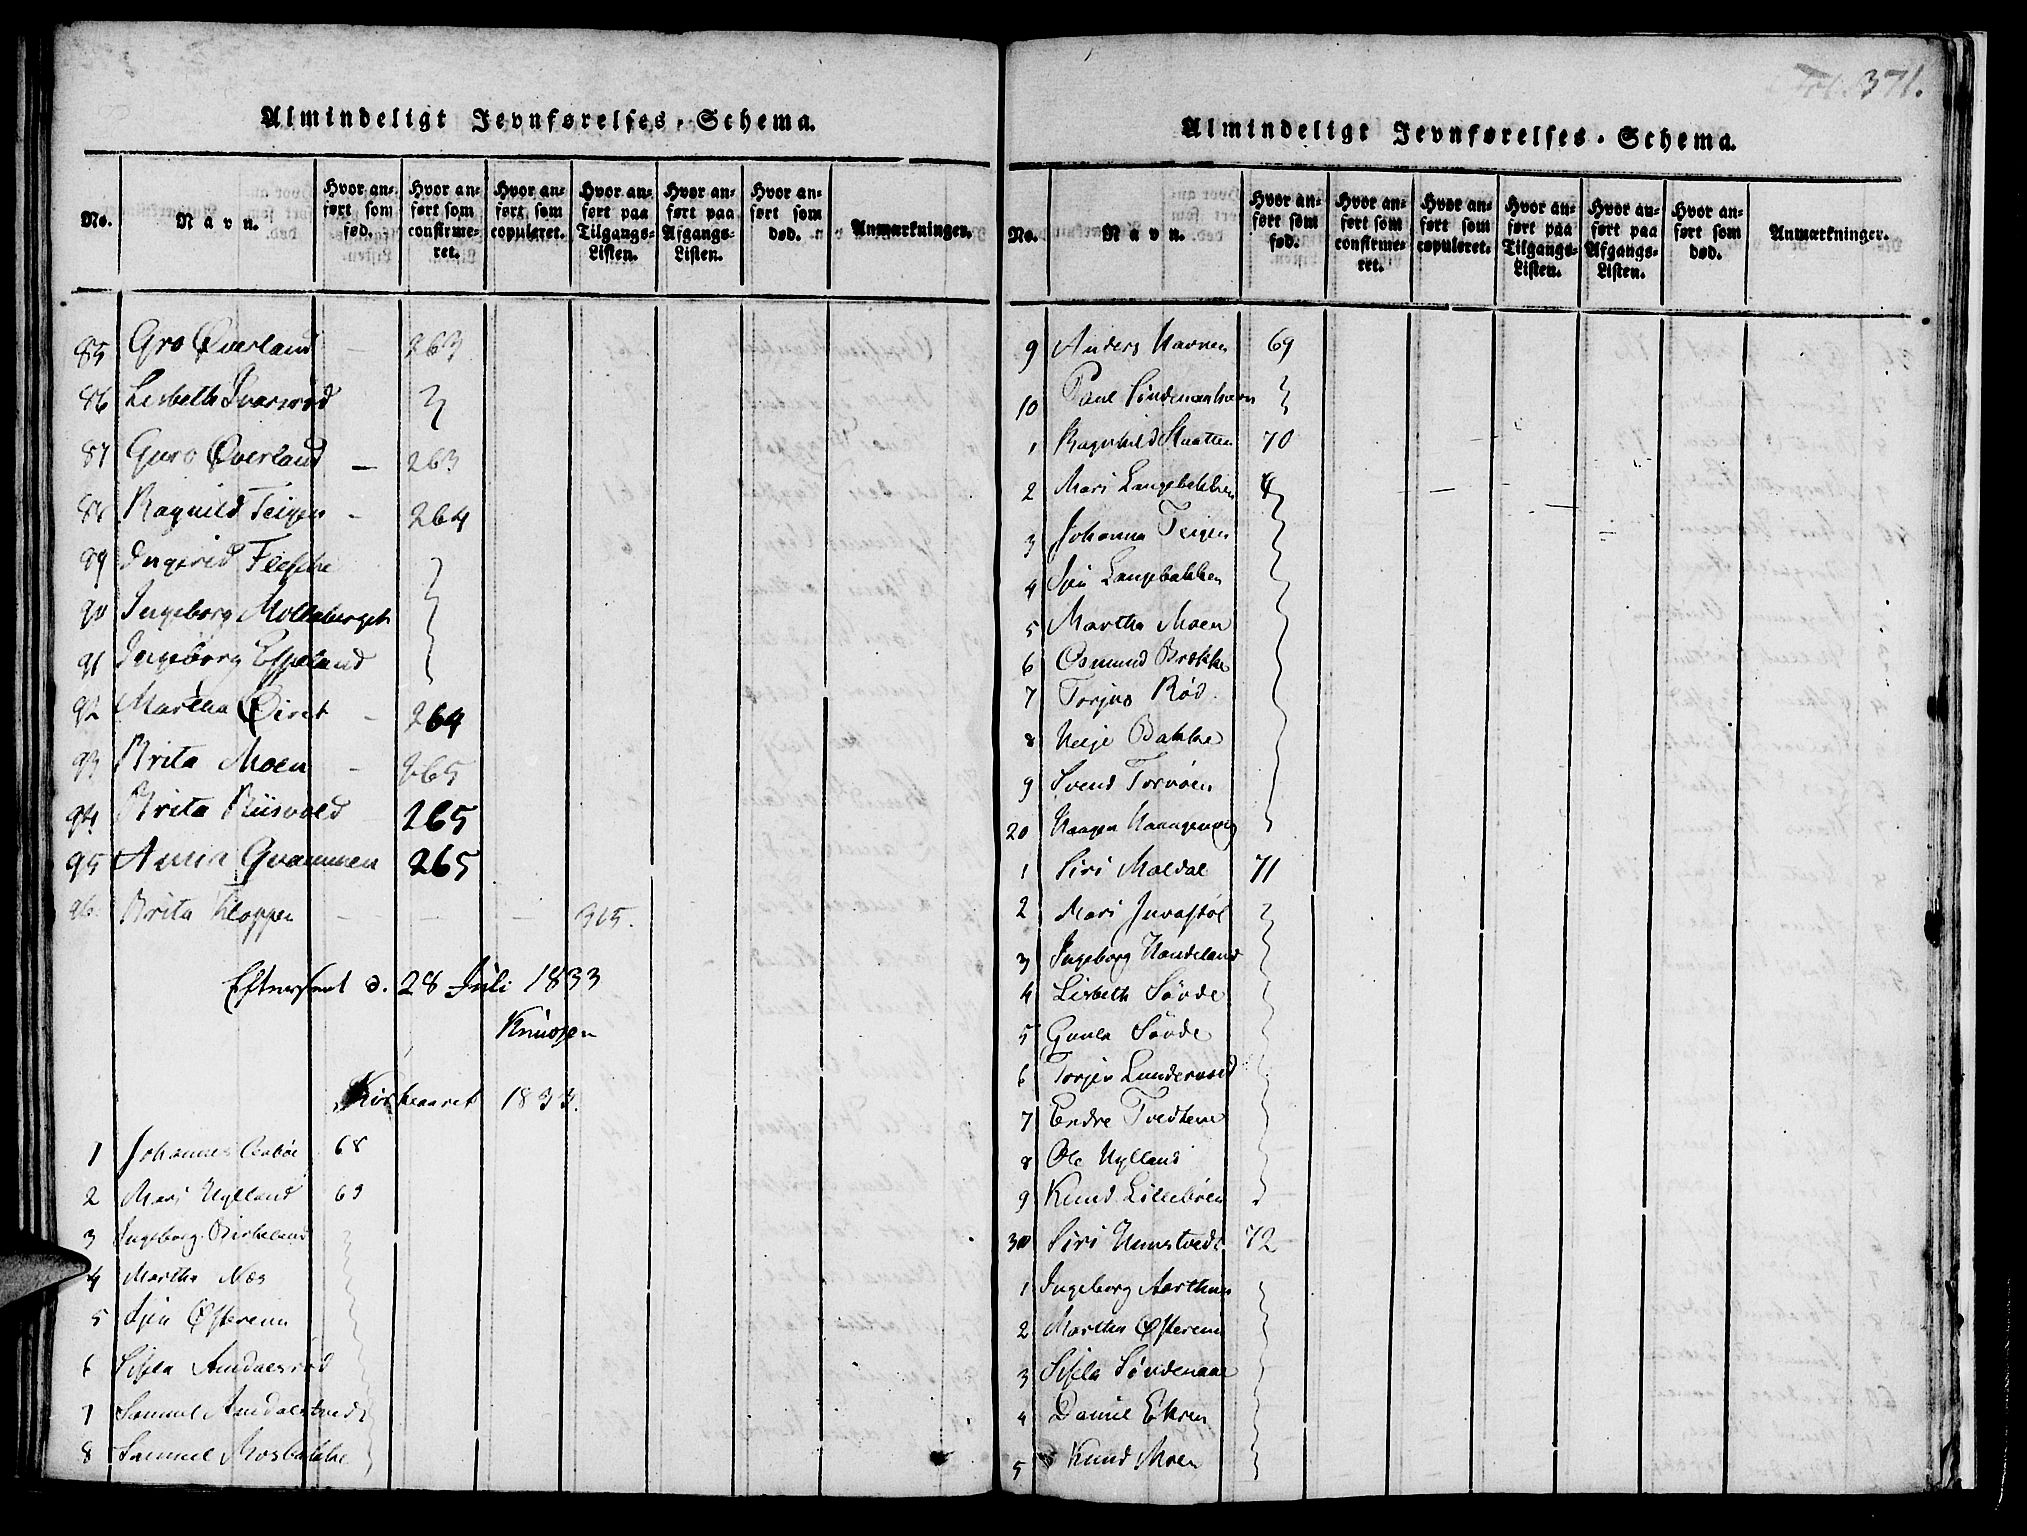 Almindeligt Jevnførelses-Schema.
No. Navn. Hvor anført som fød. Hvor anført som confirmeret. Hvor anført som copuleret. Hvor anført paa Tilgangs-Listen. Hvor anført paa Afgangs-Listen. Hvor anført som død. Anmærkninger.
85 Gro Øverland - 263
86 Lisbeth
87 Guro Øverland - 263
88 Ragnild Teigen - 264
89 Ingerid
90 Ingeborg
91 Ingeborg Espeland
92 Martha - 264
93 Brita Moen - 265
94 Brita Riisvold 265
95 Anna Qvammen 265
96 Brita Kloppen - - - 315.
Efterseet d. 28 Juli 1833
Knudsen
Kirkeaaret 1833.
1 Johannes 68
2 Mari Hylland 69
3 Ingeborg Birkeland
4 Martha Næs
5 Siri Østerem
6 Sissela
7 Samuel
8 Samuel Mosbakke
Fol. 371.
Almindeligt Jevnførelses-Schema.
No. Navn. Hvor anført som fød. Hvor anført som confirmeret. Hvor anført som copuleret. Hvor anført paa Tilgangs-Listen. Hvor anført paa Afgangs-Listen. Hvor anført som død. Anmærkninger.
9 Anders Havnen 69
10 Paul
1 Ragnhild 70
2 Mari Langebakken
3 Johanna Teigen
4 Siri Langebakken
5 Martha Moen
6 Osmund Brekke
7 Torjus Rød.
8 Helje Bakke
9 Svend
20 Haagen
1 Siri Maldal 71
2 Mari
3 Ingeborg Handeland
4 Lisbeth Søvde
5 Gunla Søvde
6 Torjus Lundervold
7 Endre Tvedtene
8 Ole Hylland
9 Knud Lillebøen
30 Siri 72
1 Ingeborg Aarthun
2 Martha Østerem
3 Sissela Søndenaae
4 Daniel Ekren
5 Knud Moen